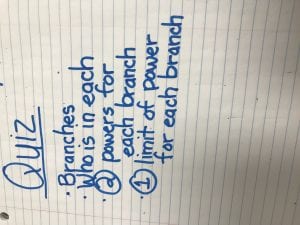 Quiz
· Branches
· Who is in each
· ② powers for
each branch
· ① limit of power
for each branch